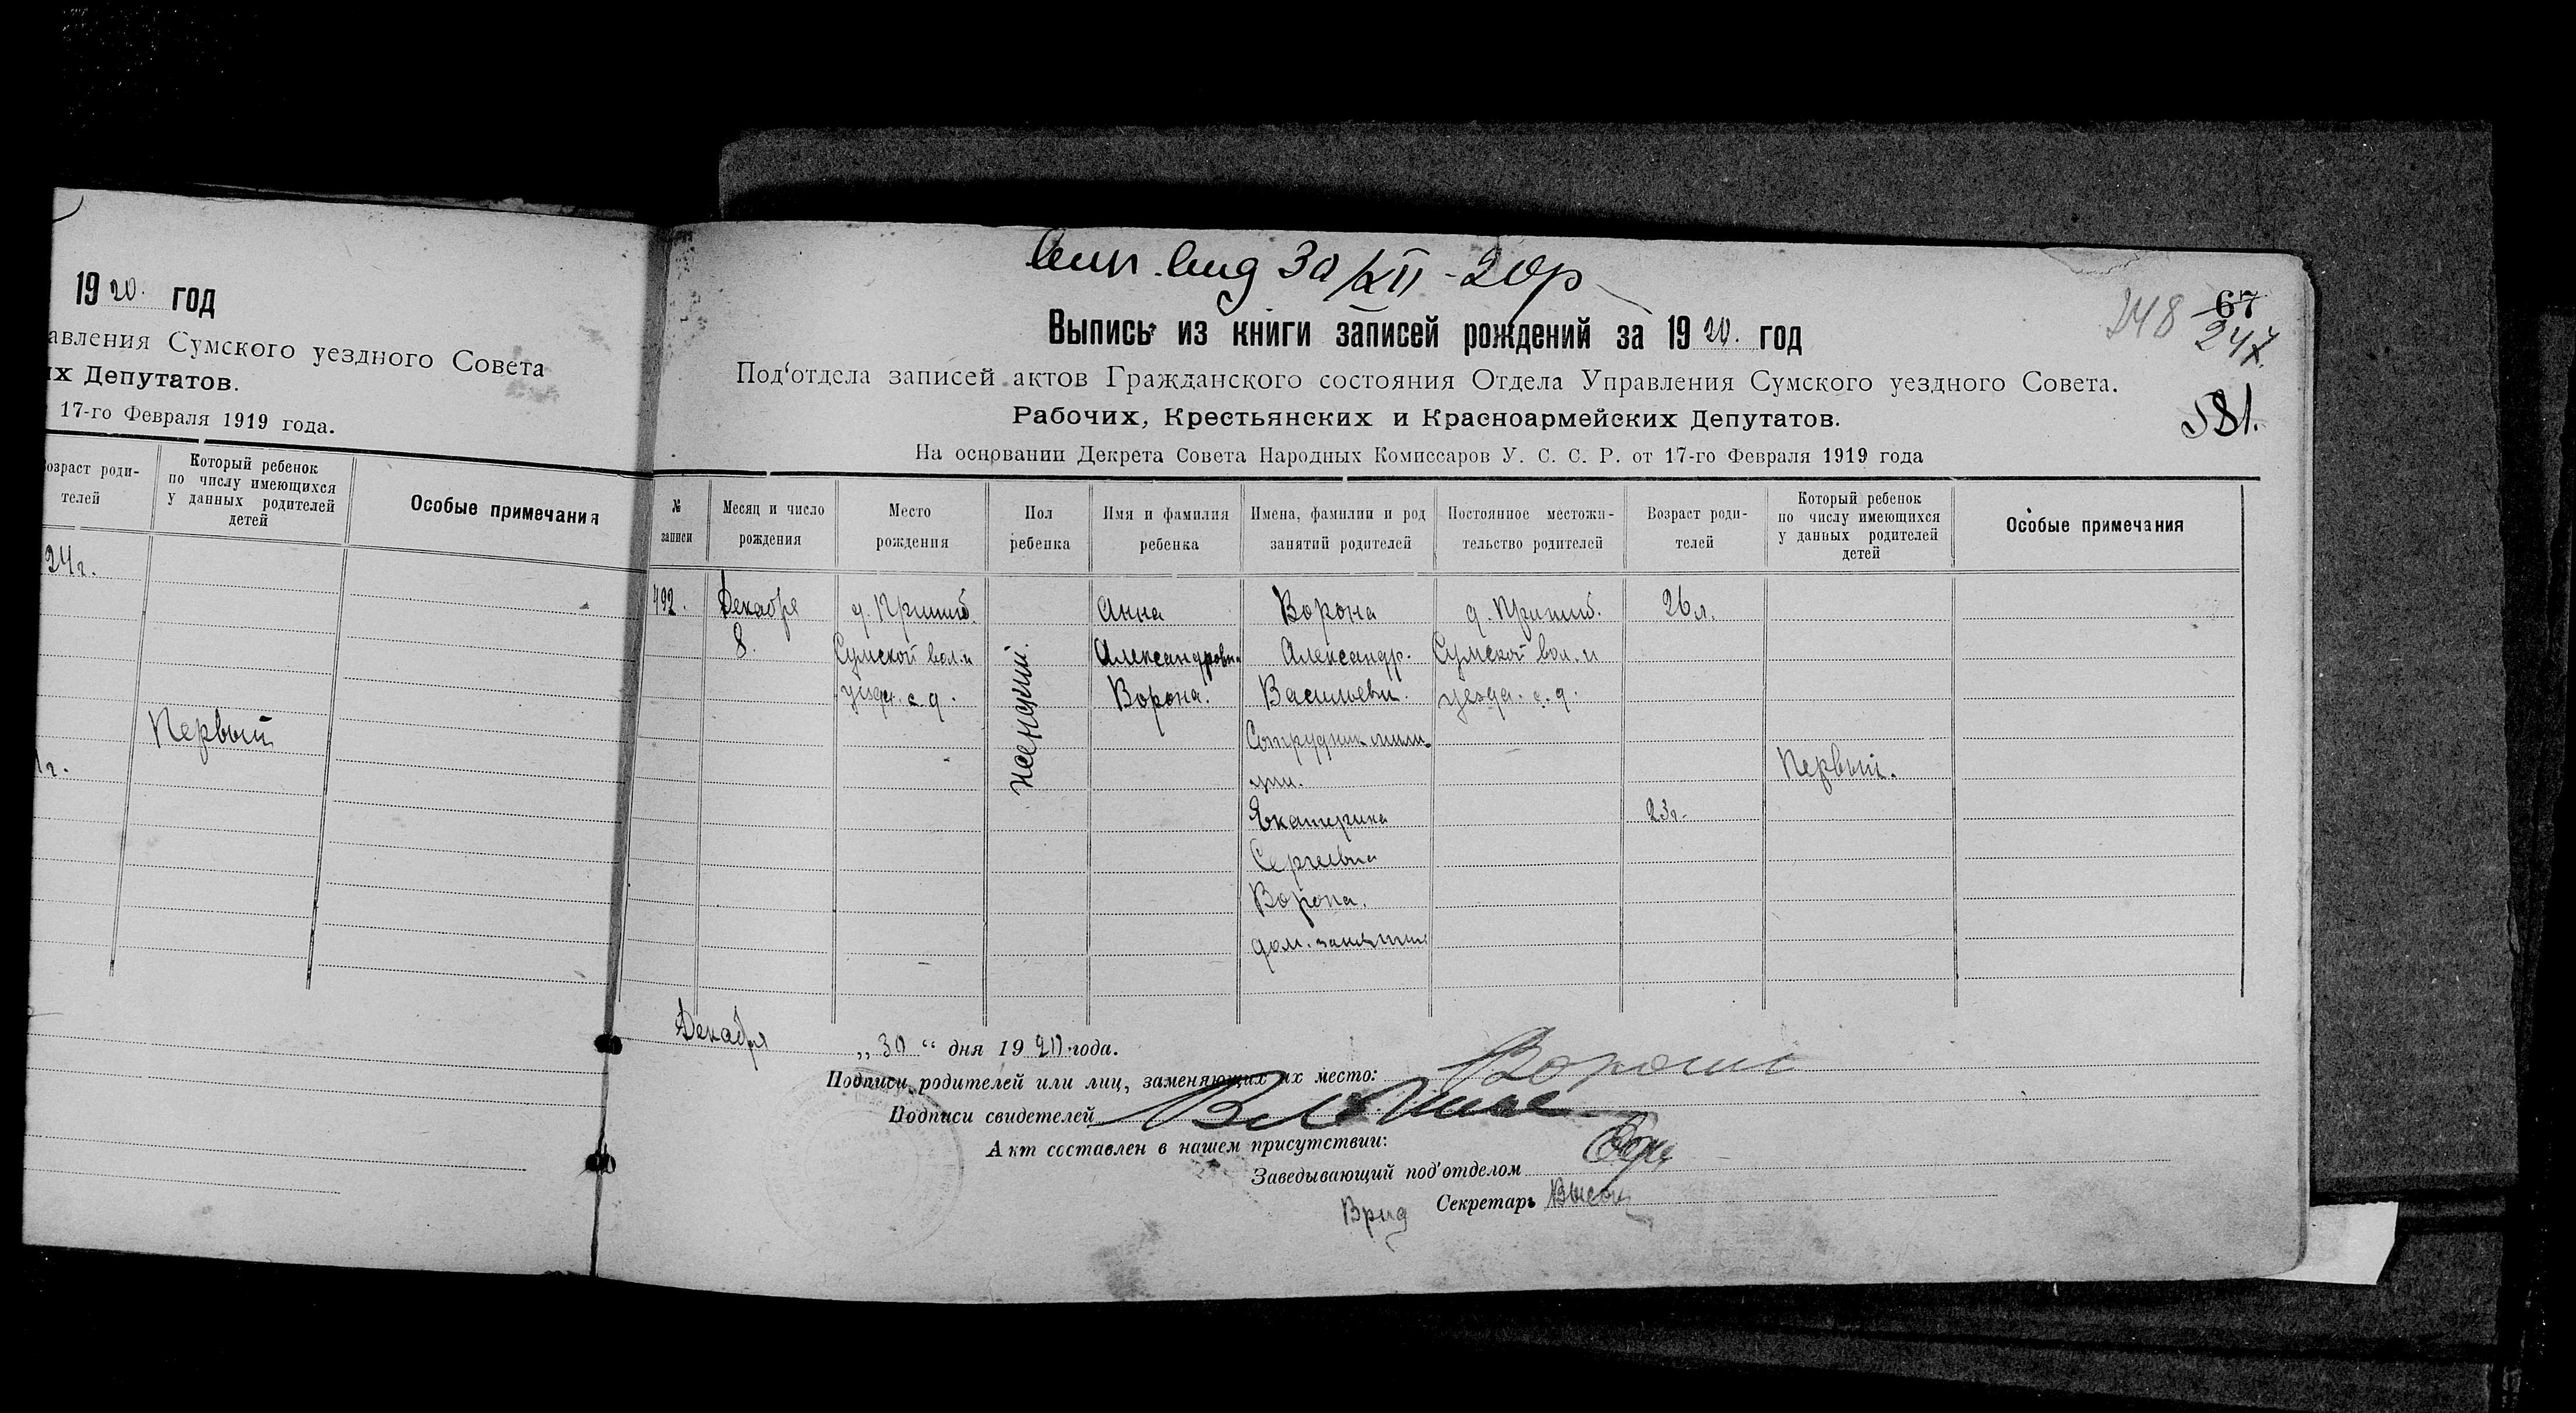 1920. год
авления Сумского уездного Совета
их Депутатов.
17-го Февраля 1919 года.
озраст роди-
телей
Который ребенок
по числу имеющихся
у данных родителей
детей
Особые примечания
24г.
Первый
1г.
30/XII-20р
248
67
247.
581.
Выпись из книги записей рождений за 1920. год
Под‘отдела записей актов Гражданского состояния Отдела Управления Сумского уездного Совета.
Рабочих, Крестьянских и Красноармейских Депутатов.
На основании Декрета Совета Народных Комиссаров У. С. С. Р. от 17-го Февраля 1919 года
№
записи
Месяц и число
рождения
Место
рождения
Пол
ребенка
Имя и фамилия
ребенка
Имена, фамилии и род
занятий родителей
Постоянное местожи-
тельство родителей
Возраст роди-
телей
Который ребенок
по числу имеющихся
у данных родителей
детей
Особые примечания
492.
Декабря
8.
Сумской вол. и
уезда. с. д.
женский.
Анна
Александровн
Ворона.
Ворона
Александр.
Васильеви.
Сотрудник мили-
ции.
Екатерина
Сергеевна
Ворона.
дом. занятия
Сумской вол. и
уезда. с. д.
26л.
23г.
Первый.
Декабря „30“ дня 1920 года.
Подписи родителей или лиц, заменяющих их место:
Подписи свидетелей
Акт составлен в нашем присутствии:
Заведывающий под‘отделом
Врид Секретарь